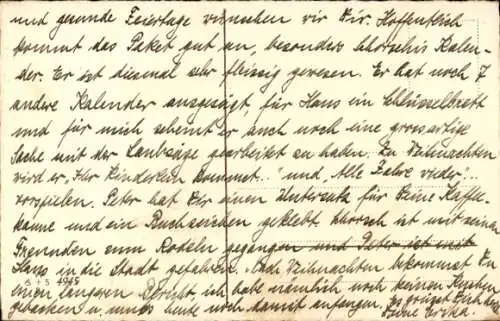 und gesunde Feiertage wünschen wir Dir. Hoffentlich
kommt das Paket gut an, besonders Schorschis Kalen-
der. Er ist diesmal sehr fleissig gewesen. Er hat noch 7
andere Kalender ausgesägt, für Hans ein Schlüsselbrett
und für mich scheint er auch noch eine grossartige
Sache mit der Laubsäge gearbeitet zu haben. Zu Weihnachten
wird er „Ihr Kinderlein kommet.." und „Alle Jahre wieder"..
vorspielen. Peter hat Dir einen Untersatz für Deine Kaffee-
kanne und ein Buchzeichen geklebt. Schorsch ist mit seinen
Freunden zum Rodeln gegangen und Peter ist mit
Hans in die Stadt gefahren. Nach Weihnachten bekommst Du
einen längeren Bericht, ich habe nämlich noch keinen Kuchen
gebacken u. muss heute noch damit anfangen. Es grüsst Dich
Deine Erika.
1965